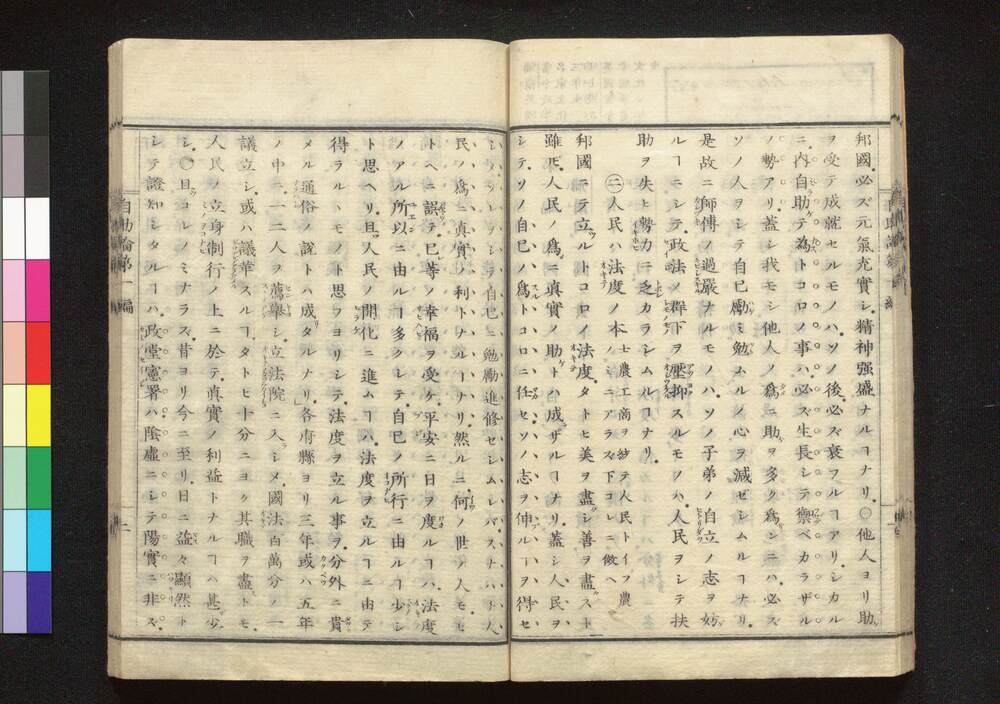 邦國。必ズ元氣充實シ。精神强盛ナルヿナリ。○他人ヨリ助
ヲ受テ成就セルモノハ。ソノ後。必ズ衰フルヿアリ。シカル
ニ。内自助テ爲トコロノ事ハ。必ズ生長シテ禦ベカラザル
ノ勢アリ。蓋シ我モシ他人ノ爲ニ助ヲ多ク爲ンニハ。必ズ
ソノ人ヲシテ自己勵ミ勉ムルノ心ヲ減ゼシムルヿナリ。
是故ニ師傅ノ過嚴ナルモノハ。ソノ子弟ノ自立ノ志ヲ妨
ルヿニシテ。政法ノ群下ヲ壓抑スルモノハ。人民ヲシテ扶
助ヲ失ヒ勢力ニ乏カラシムルヿナリ。
㊁人民ハ法度ノ本 士農工商ヲ紗テ人民トイフ農ノミニアラズ下コレニ倣ヘ
邦國ニテ立ルトコロノ法度。タトヒ美ヲ盡シ善ヲ盡ストモ
雖𪜈。人民ノ爲ニ眞實ノ助トハ成ザルヿナリ。蓋シ人民ヲ
シテ。ソノ自己ノ爲トコロニ任セ。ソノ志ヲ伸ルヿヲ得セ
シメ。自己ニ勉勵進修セシムレバ。スナハチ人
民ノ爲ニ眞實ノ利トナルヿナリ。然ルニ何ノ世ノ人モ
誤テ己等ノ幸福ヲ受ケ。平安ニ日ヲ度ルヿハ。法度
ノアル所以ニ由ルヿ多クシテ。自己ノ所行ニ由ルヿ少シ
ト思ヘリ。且人民ノ開化ニ進ムヿハ。法度ヲ立ルヿニ由テ
得ラルヽモノト思フヨリシテ。法度ヲ立ル事ヲ。分外ニ貴
メル通俗ノ說トハ成タルナリ。各府縣ヨリ三年或ハ五年
ノ中ニ。一二人ヲ薦擧シ。立法院ニ入シメ。國法百萬分ノ一
議立シ。或ハ議華スルヿ。タトヒ十分ニヨク其職ヲ盡トモ。
人民ノ立身制行ノ上ニ於テ。眞實ノ利益トナルヿハ甚少
シ。○且コレノミナラズ。昔ヨリ今ニ至リ。日ニ益々顯然ト
シテ證知シタルヿハ。政堂憲署ハ。陰虛ニシテ陽實ニ非ズ。
自助論第一編
二